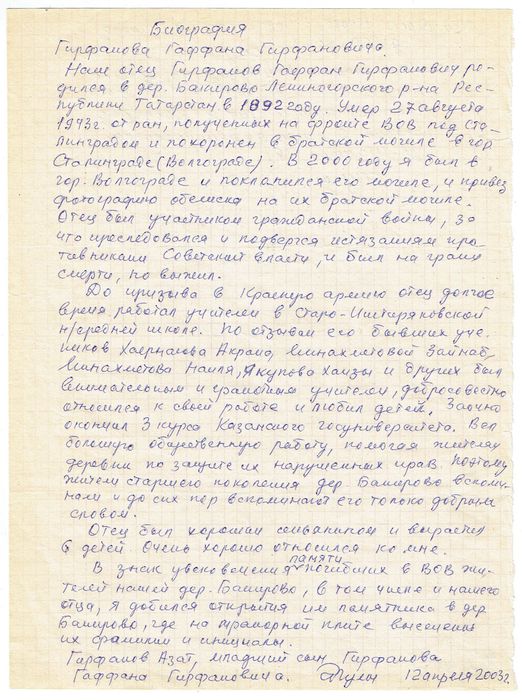 Биография
Гирфанова Гаффана Гирфановича.
Наш отец Гирфанов Гаффан Гирфанович ро-
дился в дер. Бакирово Лениногорского р-на Рес-
публики Татарстан в 1892 году. Умер 27 августа
1943г. от ран, полученных на фронте ВОВ под Ста-
линградом и похоронен в братской могиле в гор
Сталинграде (Волгограде). В 2000 году я был в
гор. Волгограде и поклонился его могиле, и привез
фотографию обелиска на их братской могиле.
Отец был участником гражданской войны, за
что преследовался и подвергся истязаниям про-
тивниками Советской власти, и был на грани
смерти, но выжил.
До призыва в Красную армию отец долгое
время работал учителем в Старо-Иштеряковской
н/средней школе. По отзывам его бывших уче-
ников Хаернасова Акрама, Минахметовой Зайнаб,
Минахметова Наиля, Якупова Хамзы и других был
внимательным и грамотным учителем, добросовестно
относился к своей работе и любил детей. Заочно
окончил 3 курса Казанского госуниверситета. Вел
большую общественную работу, помогая жителям
деревни по защите их нарушенных прав. Поэтому
жители старшего поколения дер. Бакирово вспоми-
нали и до сих пор вспоминают его только добрым
словом.
Отец был хорошим семьянином и вырастил
6 детей. Очень хорошо относился ко мне.
В знак увековечения памяти погибших в ВОВ жи-
телей нашей дер. Бакирово, в том числе и нашего
отца, я добился открытия им памятника в дер
Бакирово, где на мраморной плите высечены
их фамилии и инициалы.
Гирфанов Азат, младший сын Гирфанова
Гаффана Гирфановича. 12 апреля 2003г.